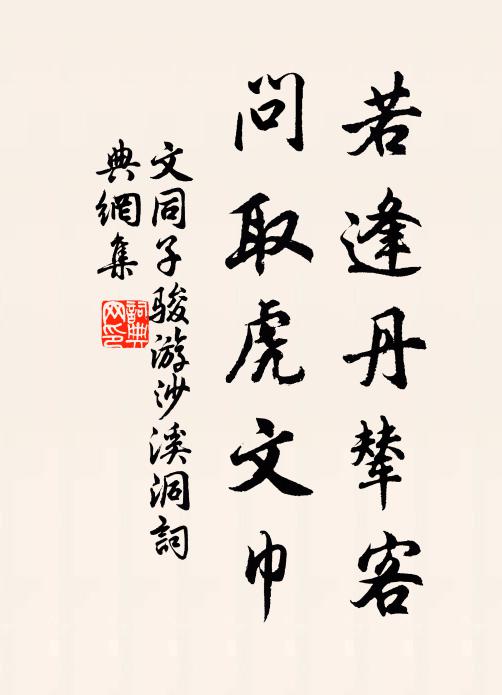 若逢丹輦客
問取虎文巾
文同子骏游沙溪洞詞
典網集
詞典
网印